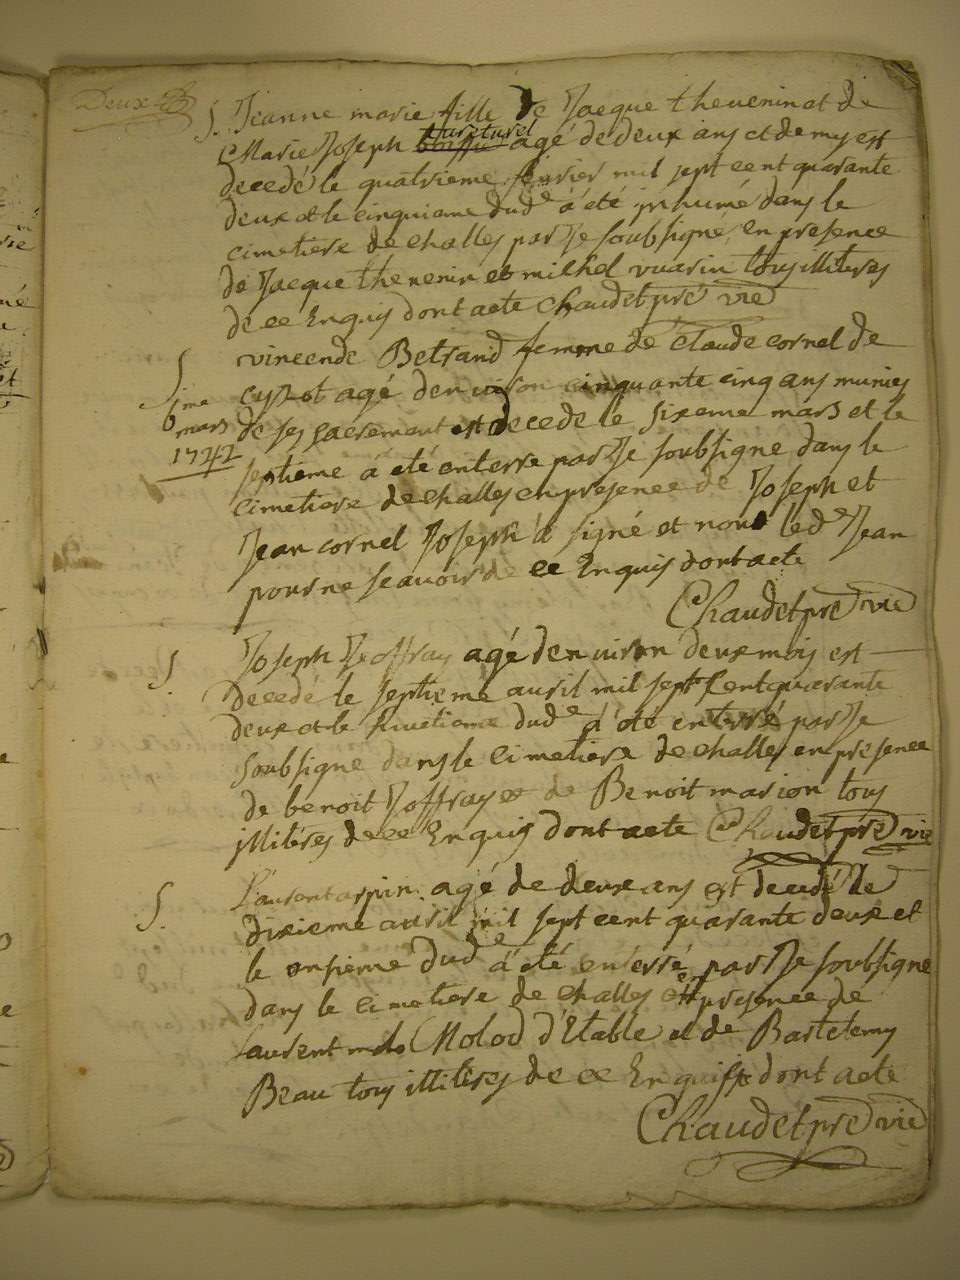 Deux
S. Jeanne marie fille de Jacque thevenin et de
Marie Joseph agé de deux ans et demy est
decedé le quatrieme fevrier mil sept cent quarante
deux et le cinquiame dud e a été inhumé dans le
cimetiere de challes par Je soubsigné en presence
de Jacque thevenin et milhel vuarin tous illiteres
de ce Enquis dont acte Chaudet pre vic
S. vincende Betrand femme de Claude cornel de
agé denviron cinquante cinq ans munies
6 ime mars 1742
de ses sacrement est decede le sixeme mars et le
septieme a été enterre par Je soubsigne dans le
cimetiere de challes en presence de Joseph et
Jean cornel Joseph a signé et non led e Jean
pour ne scavoir de ce Enquis dont acte
Chaudet pre vic
S. Joseph Joffray agé denviron deux mois est
decedé le septieme avril mil sept Cent quarante
deux et le huitiame dud e a été enterré par Je
soubsigne dans le cimetiere de challes en presence
de benoit Joffray et de Benoit marion tous
illitérés de ce Enquis dont acte Chaudet pre vic
S. Laurent arpin agé de deux ans est decedé le
dixieme avril mil sept cent quarante deux et
le onsieme dud e a été enterré par Je soubsigne
dans le cimetiere de challes en presence de
laurent Molod d'Etable et de Bartelemy
Beau tous illitérés de ce Enquis dont acte
Chaudet pre vic